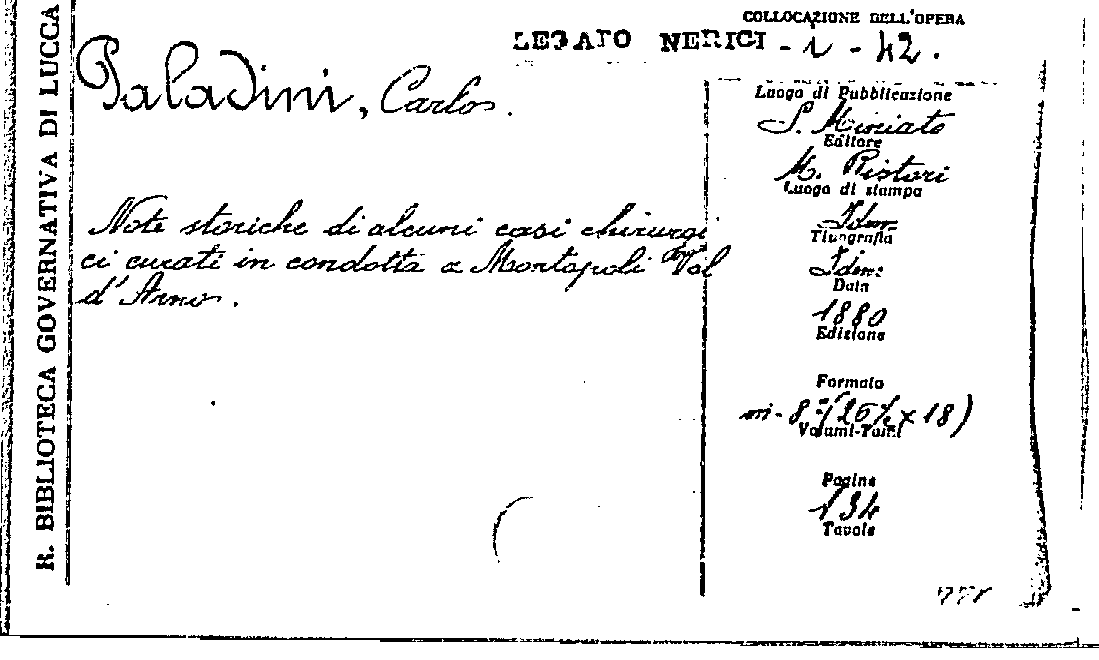 R. BIBLIOTECA GOVERNATIVA DI LUCCA
COLLOCAZIONE DELL'OPERA
LEGATO NERICI - 1 - 42.
Paladini, Carlo.
Note storiche di alcuni casi chirurgi
ci curati in condotta a Montapoli Val
d'Arno.
Luogo di Pubblicazione
S. Miniato
Editore
M. Ristori
Luogo di stampa
Idem
Tipografia
Idem
Data
1880
Edizione
Formato
in-8° (26½ x 18)
Volumi-Tomi
Pagine
134
Tavole